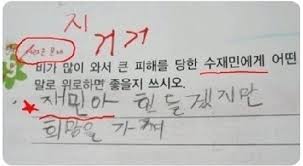 지
거거
9
비가 많이 와서 큰 피해를 당한 수재민에게 어떤
말로 위로하면 좋을지 쓰시오.
★재민아 힘들겠지만
희망을 가져